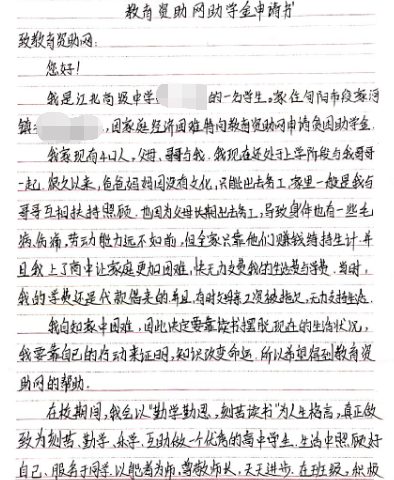 教育资助网助学金申请书
致教育资助网:
您好!
我是江北高级中学的一名学生,家住旬阳市段家河
镇,因家庭经济困难特向教育资助网申请贫困助学金.
我家现有4口人,父母、哥哥与我.我现在还处于上学阶段与我哥哥
一起.很久以来,爸爸妈妈因没有文化,只能出去务工,家里一般是我与
哥哥互相扶持照顾.也因为父母长期出去务工,导致身体也有一些毛
病,伤痛,劳动能力远不如前,但全家只靠他们赚钱维持生计.并
且我上了高中让家庭更加困难,快无力交费我的生活费与学费.当时,
我的学费还是代款借来的并且,有时父母亲工资被拖欠,无力支持生活.
我自知家中困难,因此决定要靠读书摆脱现在的生活状况,
我要靠自己的行动来证明,知识改变命运.所以希望得到教育资
助网的帮助.
在校期间,我会以"勤学勤思,刻苦读书"为人生格言,真正做
致为刻苦、勤学、乐学、互助做一个优秀的高中学生.生活中照顾好
自己、服务于同学.以能者为师,尊敬师长,天天进步.在班级,积极